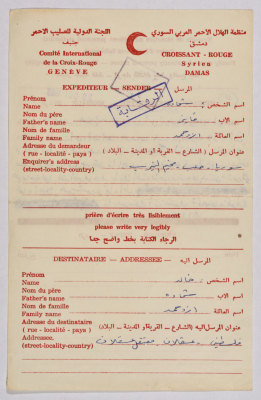 اللجنة الدولية للصليب الاحمر
جنيف
Comité International
de la Croix-Rouge
GENEVE
منظمة الهلال الاحمر العربي السوري
دمشق
CROISSANT - ROUGE
Syrien
DAMAS
EXPEDITEUR - SENDER المرسل
Prénom
Name اسم الشخص :
Nom du père
Father's name اسم الاب
Nom de famille
Family name اسم العائلة
Adresse du demandeur
(rue - localité - pays)
عنوان المرسل (الشارع – القرية او المدينة – البلاد)
Enquirer's address
(street-locality-country)
سوريا - حلب - مخيم النيرب
prière d'écrire très lisiblement
please write very legibly
الرجاء الكتابة بخط واضح جدا
DESTINATAIRE — ADDRESSEE المرسل اليه
Prénom
Name اسم الشخص : خالد
Nom du père
Father's name اسم الاب
Nom de famille
Family name اسم العائلة
Adresse du destinataire
(rue - localité - pays)
عنوان المرسل اليه (الشارع – القرية او المدينة – البلاد)
Addressee.
(street-locality-country)
فلسطين - عسقلان معتقل عسقلان